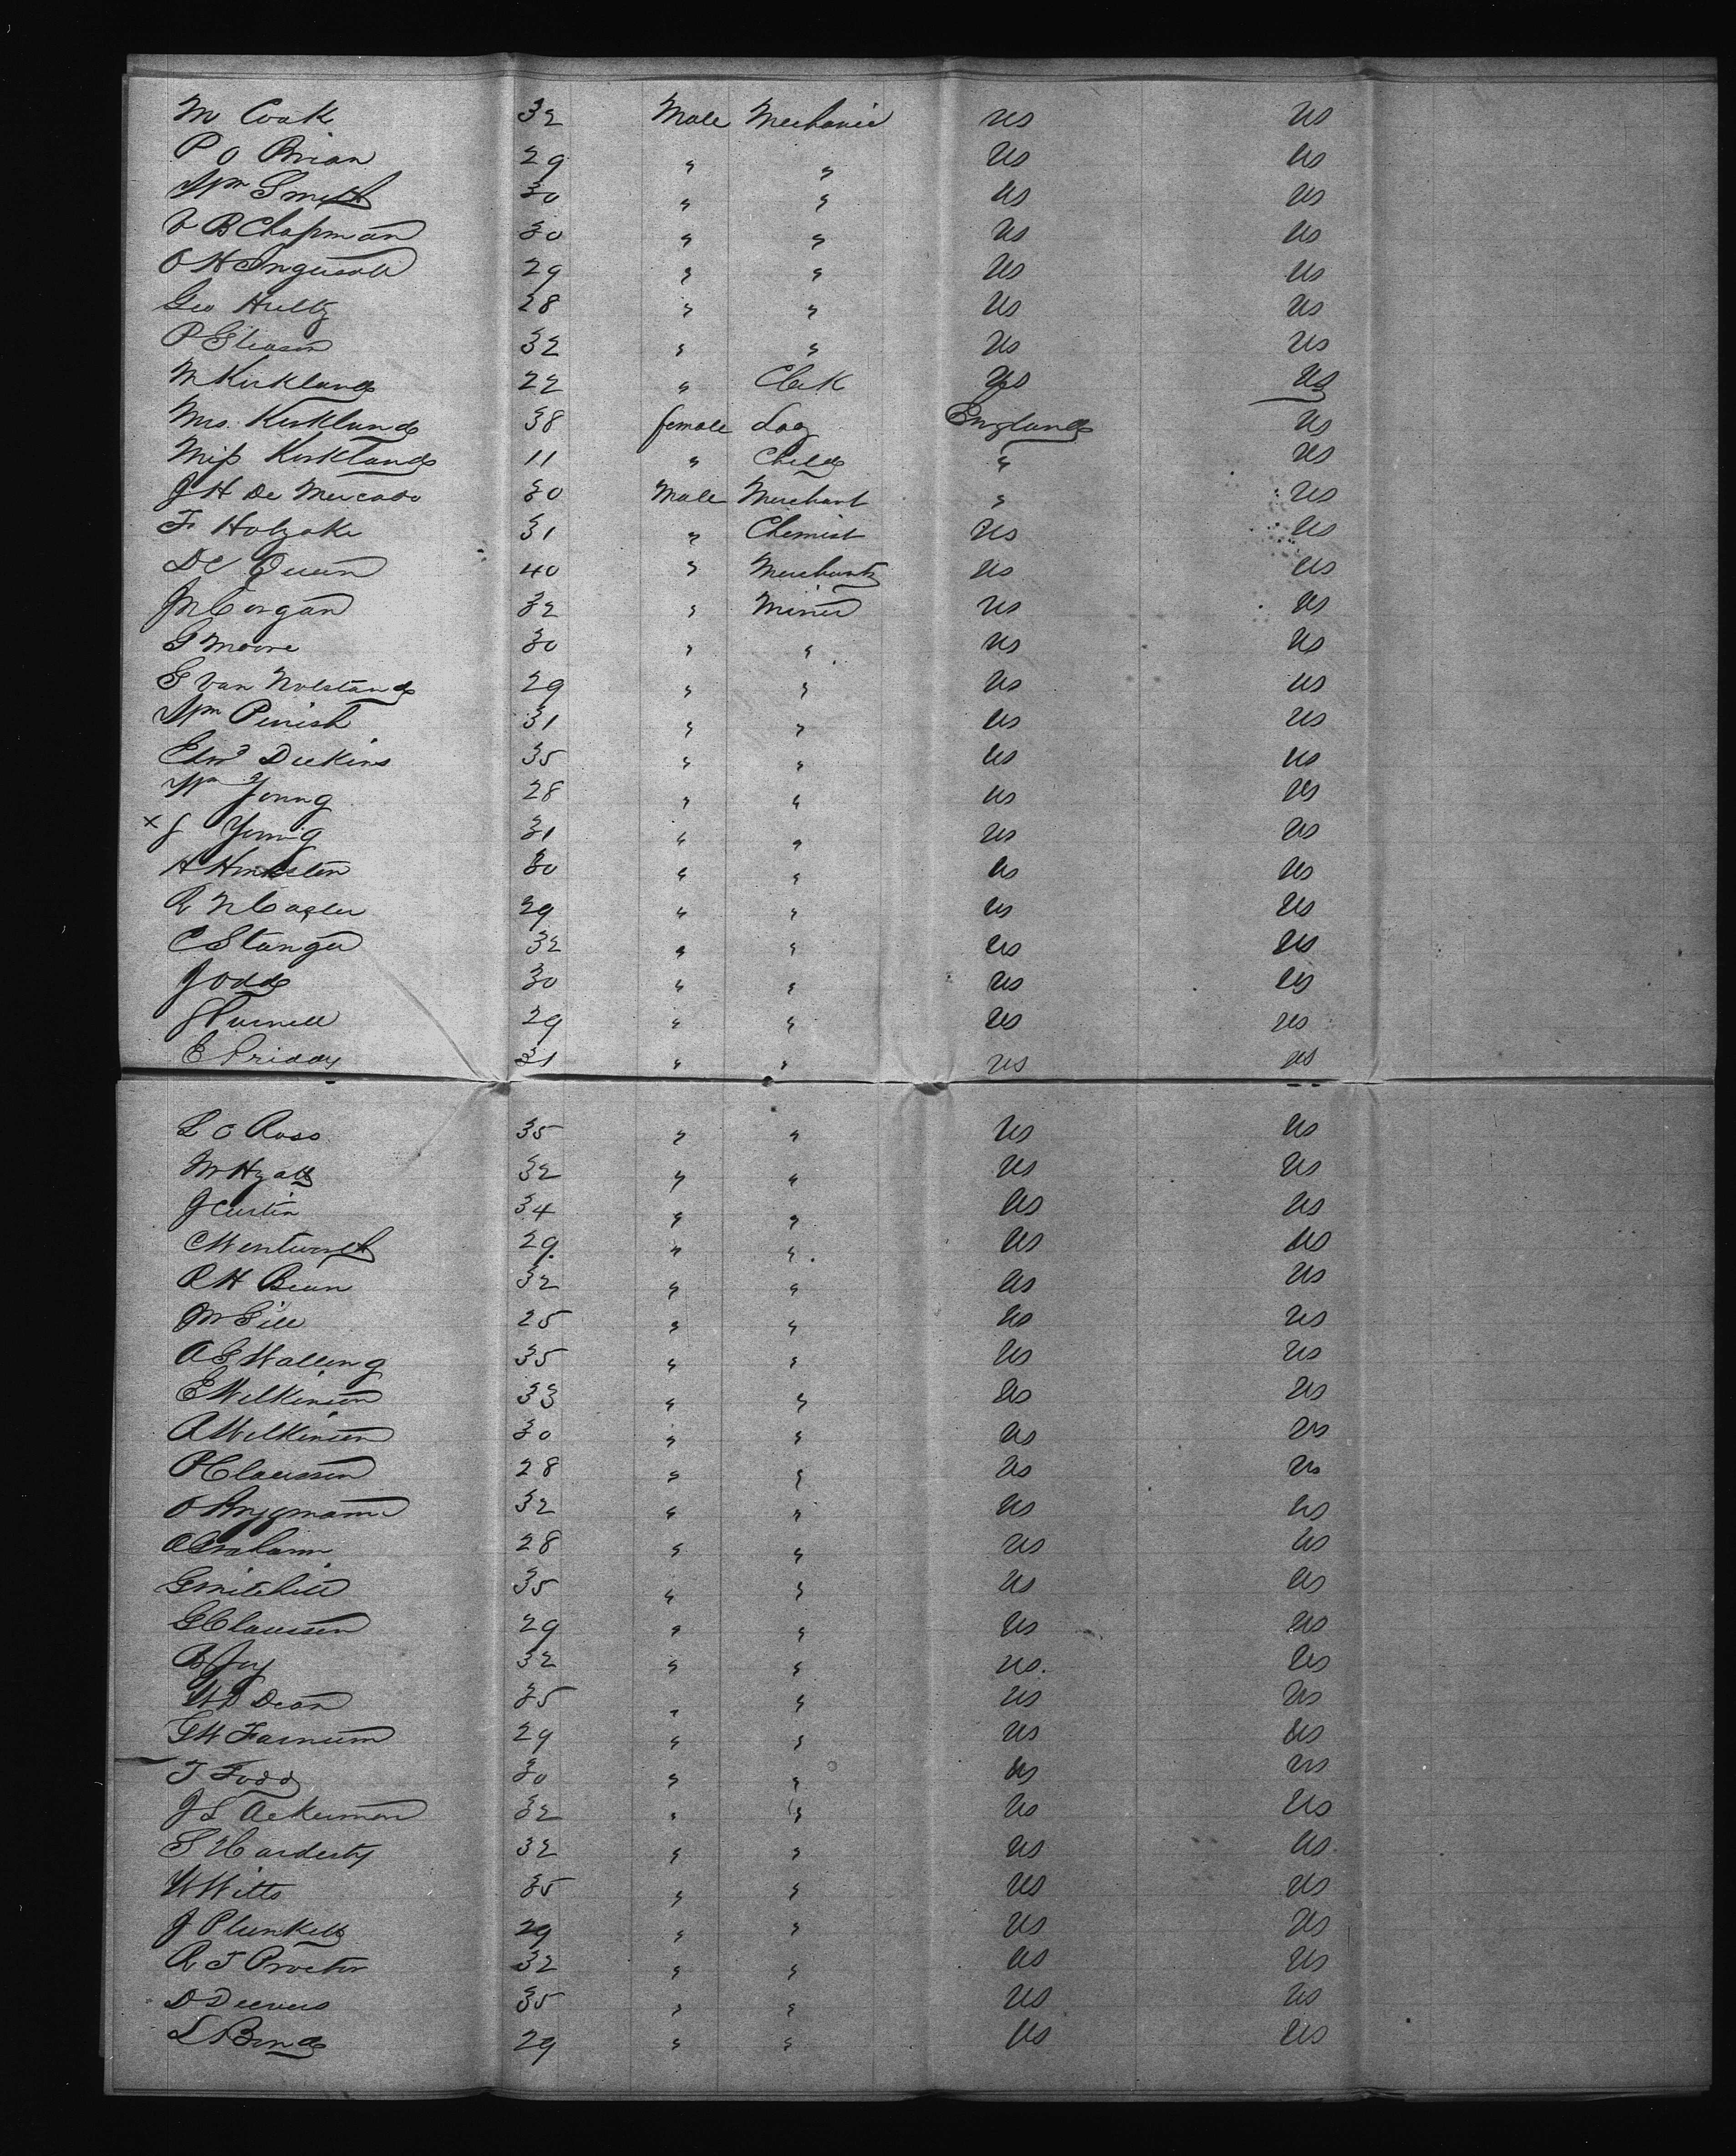 M Cook 32 Male Mechanic US US
P O Brian 29 " " US US
Wm Smith 30 " " US US
V B Chapman 30 " " US US
O H Ingersoll 29 " " US US
Geo Hultz 28 " " US US
P Gleason 32 " " US US
M Kirkland 22 " Clerk US US
Mrs. Kirkland 38 female Lady England US
Miss Kirkland 11 " Child " US
J H De Mercado 30 Male Merchant " US
F Holzake 31 " Chemist US US
D C Queen 40 " Merchant US US
J M Corgan 32 " Miner US US
G Moore 30 " " US US
G Van Nolstand 29 " " US US
Wm Penish 31 " " US US
Edwd Deekins 35 " " US US
Wm Young 28 " " US US
x J Young 31 " " US US
A Hinkston 30 " " US US
R N Casler 29 " " US US
C Stanger 32 " " US US
J Odd 30 " " US US
J Purnell 29 " " US US
E Priday 31 " " US US
L C Ross 35 " " US US
M Hyatt 32 " " US US
J Curtin 34 " " US US
C Wentworth 29 " " US US
R H Bean 32 " " US US
M Gill 25 " " US US
A G Walling 35 " " US US
E Wilkinson 33 " " US US
A Wilkinson 30 " " US US
P Claussen 28 " " US US
O Brygmann 32 " " US US
A Graham 28 " " US US
G Mitchell 35 " " US US
G Claussen 29 " " US US
B Joy 32 " " US. US
W D Dean 35 " " US US
G W Farnum 29 " " US US
T Todd 30 " " US US
J L Ackerman 32 " " US US
S Hardesty 32 " " US US
W Witts 35 " " US US
J Plunkett 29 " " US US
R T Proctor 32 " " US US
D Deevers 35 " " US US
L Bond 29 " " US US